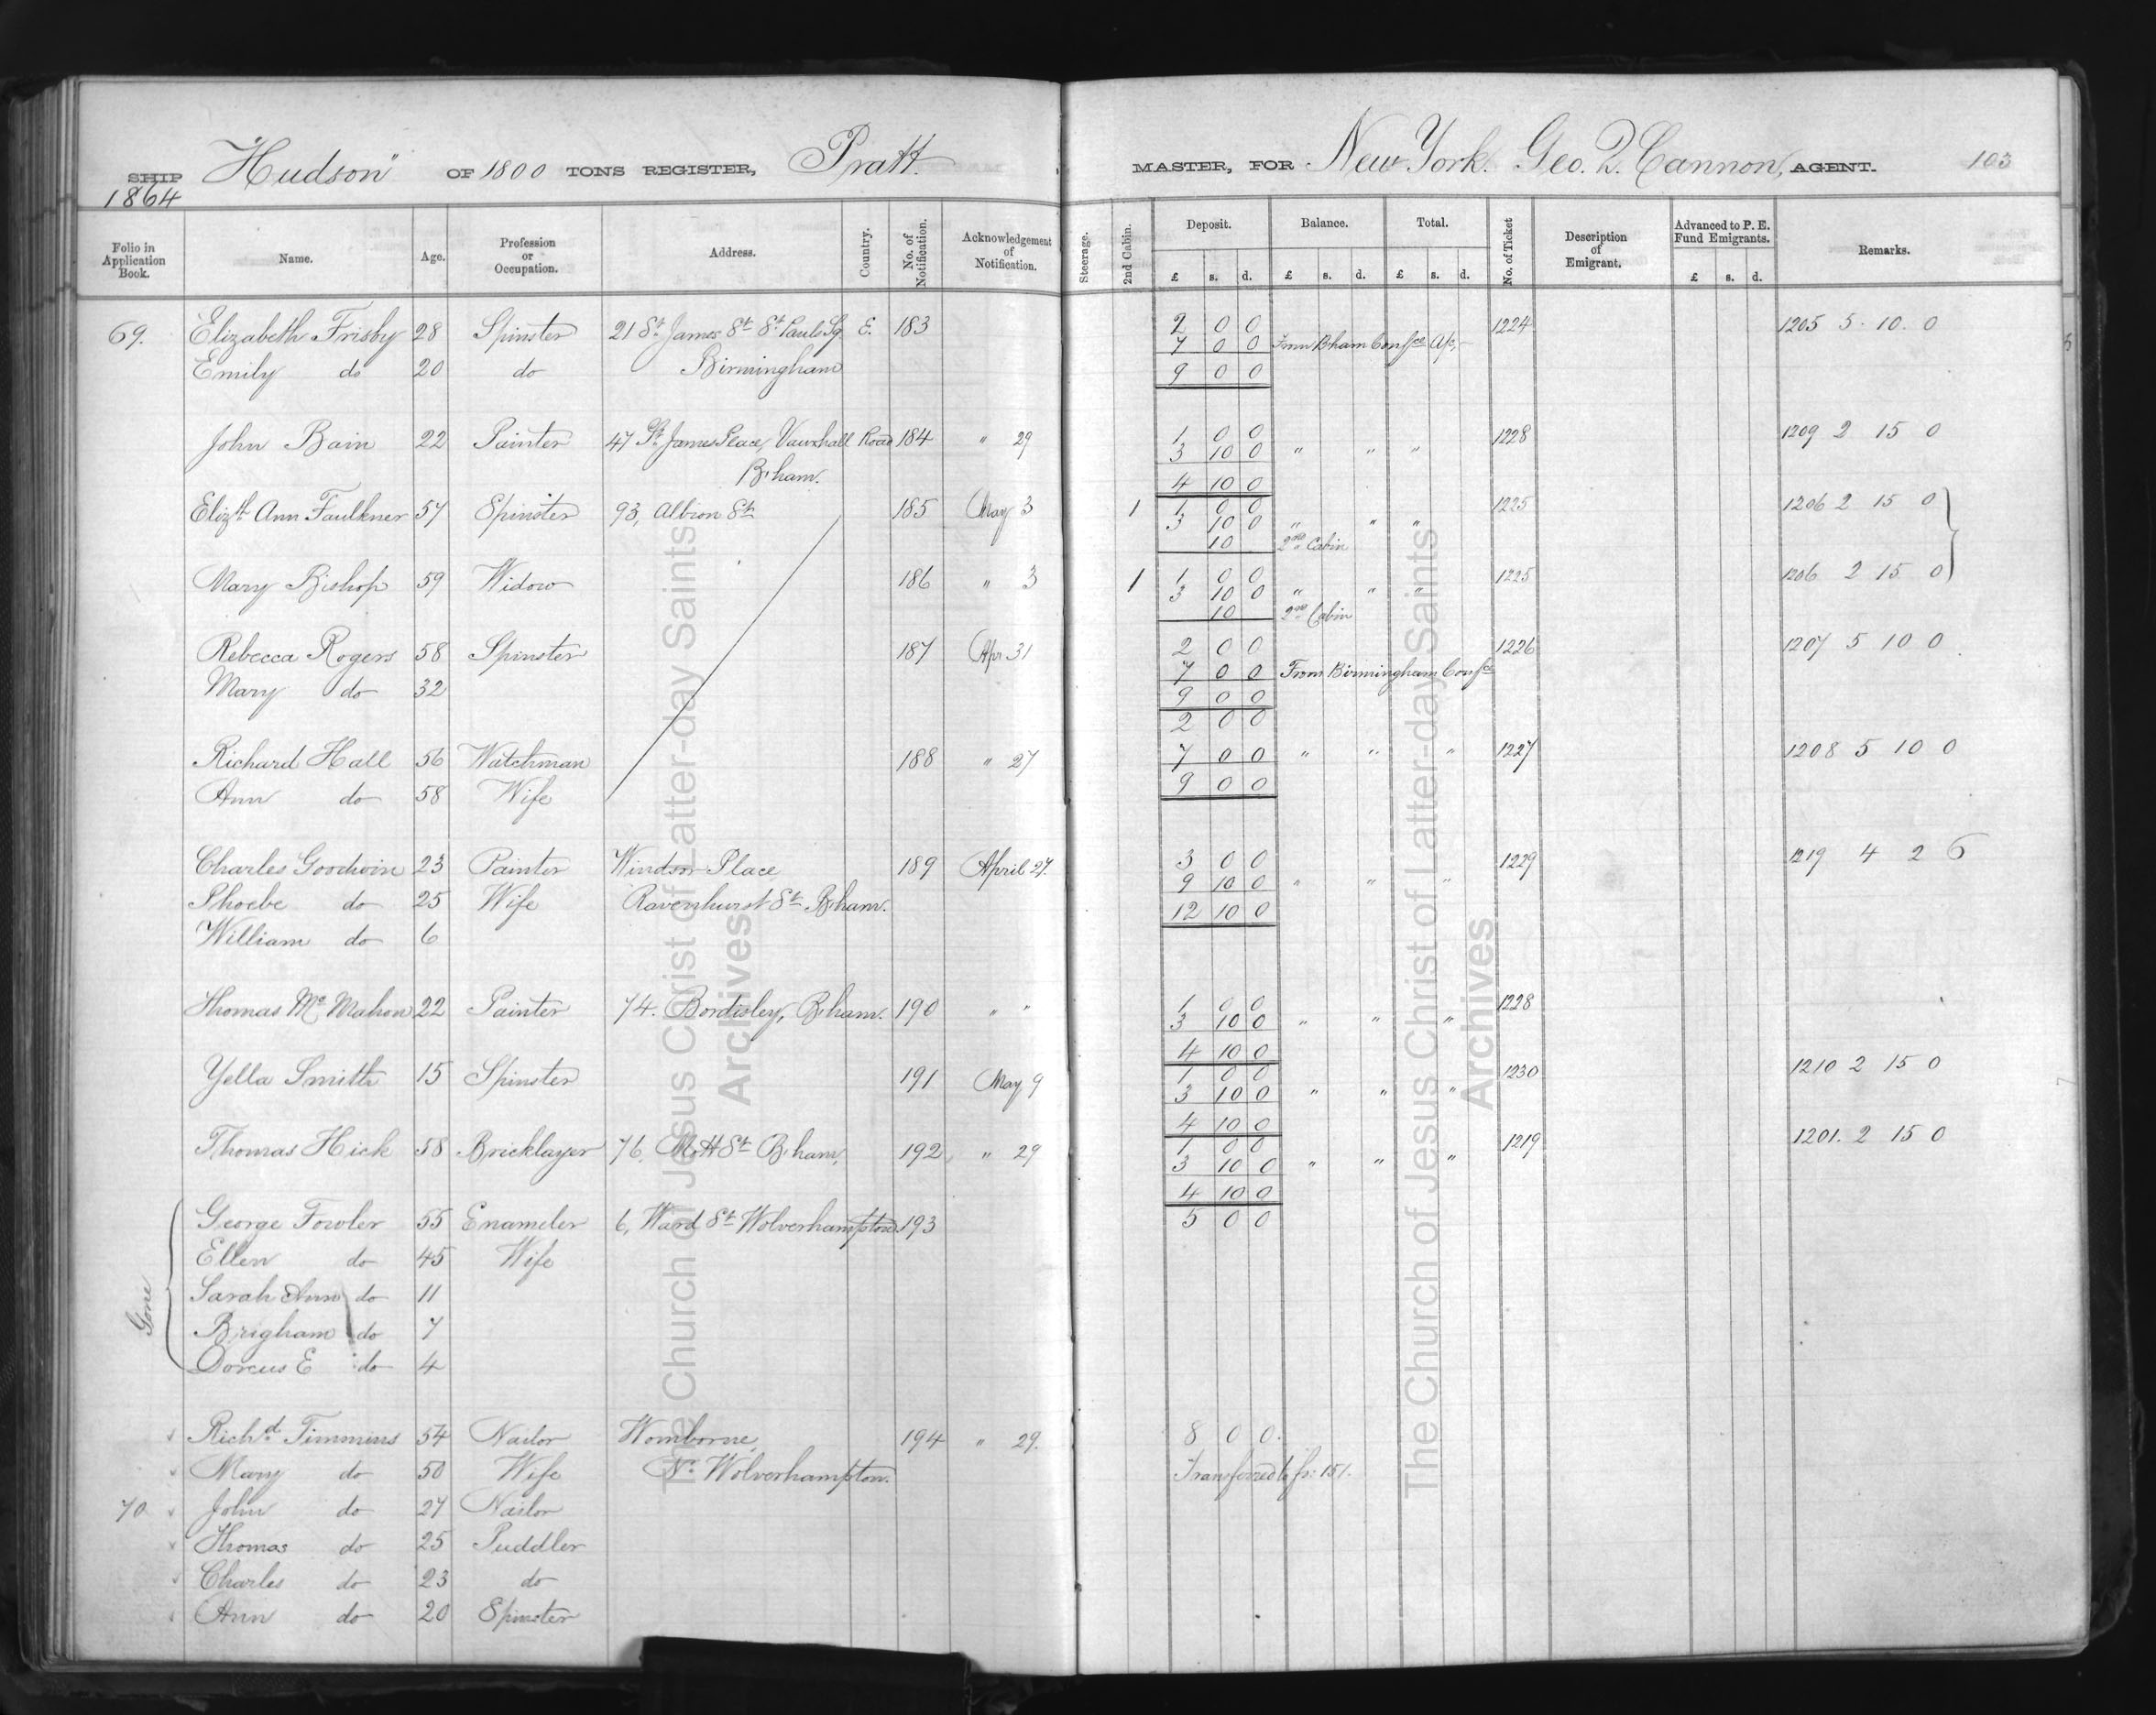 SHIP "Hudson" OF 1800 TONS REGISTER, Pratt. MASTER, FOR New York. Geo. Q. Cannon, AGENT. 103
1864
Folio in Application Book. Name. Age. Profession or Occupation. Address. Country. No. of Notification. Acknowledgement of Notification. Steerage. 2nd Cabin. Deposit. Balance. Total. No. of Ticket Description of Emigrant. Advanced to P. E. Fund Emigrants. Remarks.
£ s. d. £ s. d. £ s. d. £ s. d.
69. Elizabeth Frisby 28 Spinster 21 St. James St. St. Pauls Sq. E. 183 2 0 0 1224 1205 5. 10. 0
7 0 0 From B'ham Confce A/c,
Emily do 20 do Birmingham 9 0 0
John Bain 22 Painter 47 St. James Place, Vauxhall Road 184 " 29 1 0 0 1228 1209 2 15 0
3 10 0 " " "
B'ham. 4 10 0
Elizth Ann Faulkner 57 Spinster 93, Albion St. 185 May 3 1 1 0 0 1225 1206 2 15 0
3 10 0 " " "
10 2nd Cabin
Mary Bishop 59 Widow 186 " 3 1 1 0 0 1225 1206 2 15 0
3 10 0 " " "
10 2nd Cabin
Rebecca Rogers 58 Spinster 187 Apr 31 2 0 0 1226 1207 5 10 0
7 0 0 From Birmingham Confce
Mary do 32 9 0 0
2 0 0
Richard Hall 56 Watchman 188 " 27 7 0 0 " " " 1227 1208 5 10 0
Ann do 58 Wife 9 0 0
Charles Goodwin 23 Painter Windsor Place 189 April 27. 3 0 0 1229 1219 4 2 6
9 10 0 " " "
Phoebe do 25 Wife Ravenhurst St. B'ham. 12 10 0
William do 6
Thomas Mc Mahon 22 Painter 74. Bordesley, B'ham. 190 " " 1 0 0 1228
3 10 0 " " "
4 10 0
Yella Smith 15 Spinster 191 May 9 1 0 0 1230 1210 2 15 0
3 10 0 " " "
4 10 0
Thomas Hick 58 Bricklayer 76, Mott St. B'ham, 192 " 29 1 0 0 1219 1201. 2 15 0
3 10 0 " " "
4 10 0
George Fowler 55 Enameler 6, Ward St. Wolverhampton 193 5 0 0
Ellen do 45 Wife
Sarah Ann do 11
Gone
Brigham do 7
Dorcus E do 4
Richd. Timmins 54 Nailor Womborne, 194 " 29. 8 0 0.
Mary do 50 Wife Nr. Wolverhampton. Transferred to fo: 151.
70 John do 27 Nailor
Thomas do 25 Puddler
Charles do 23 do
Ann do 20 Spinster
The Church of Jesus Christ of Latter-day Saints
Archives
The Church of Jesus Christ of Latter-day Saints
Archives